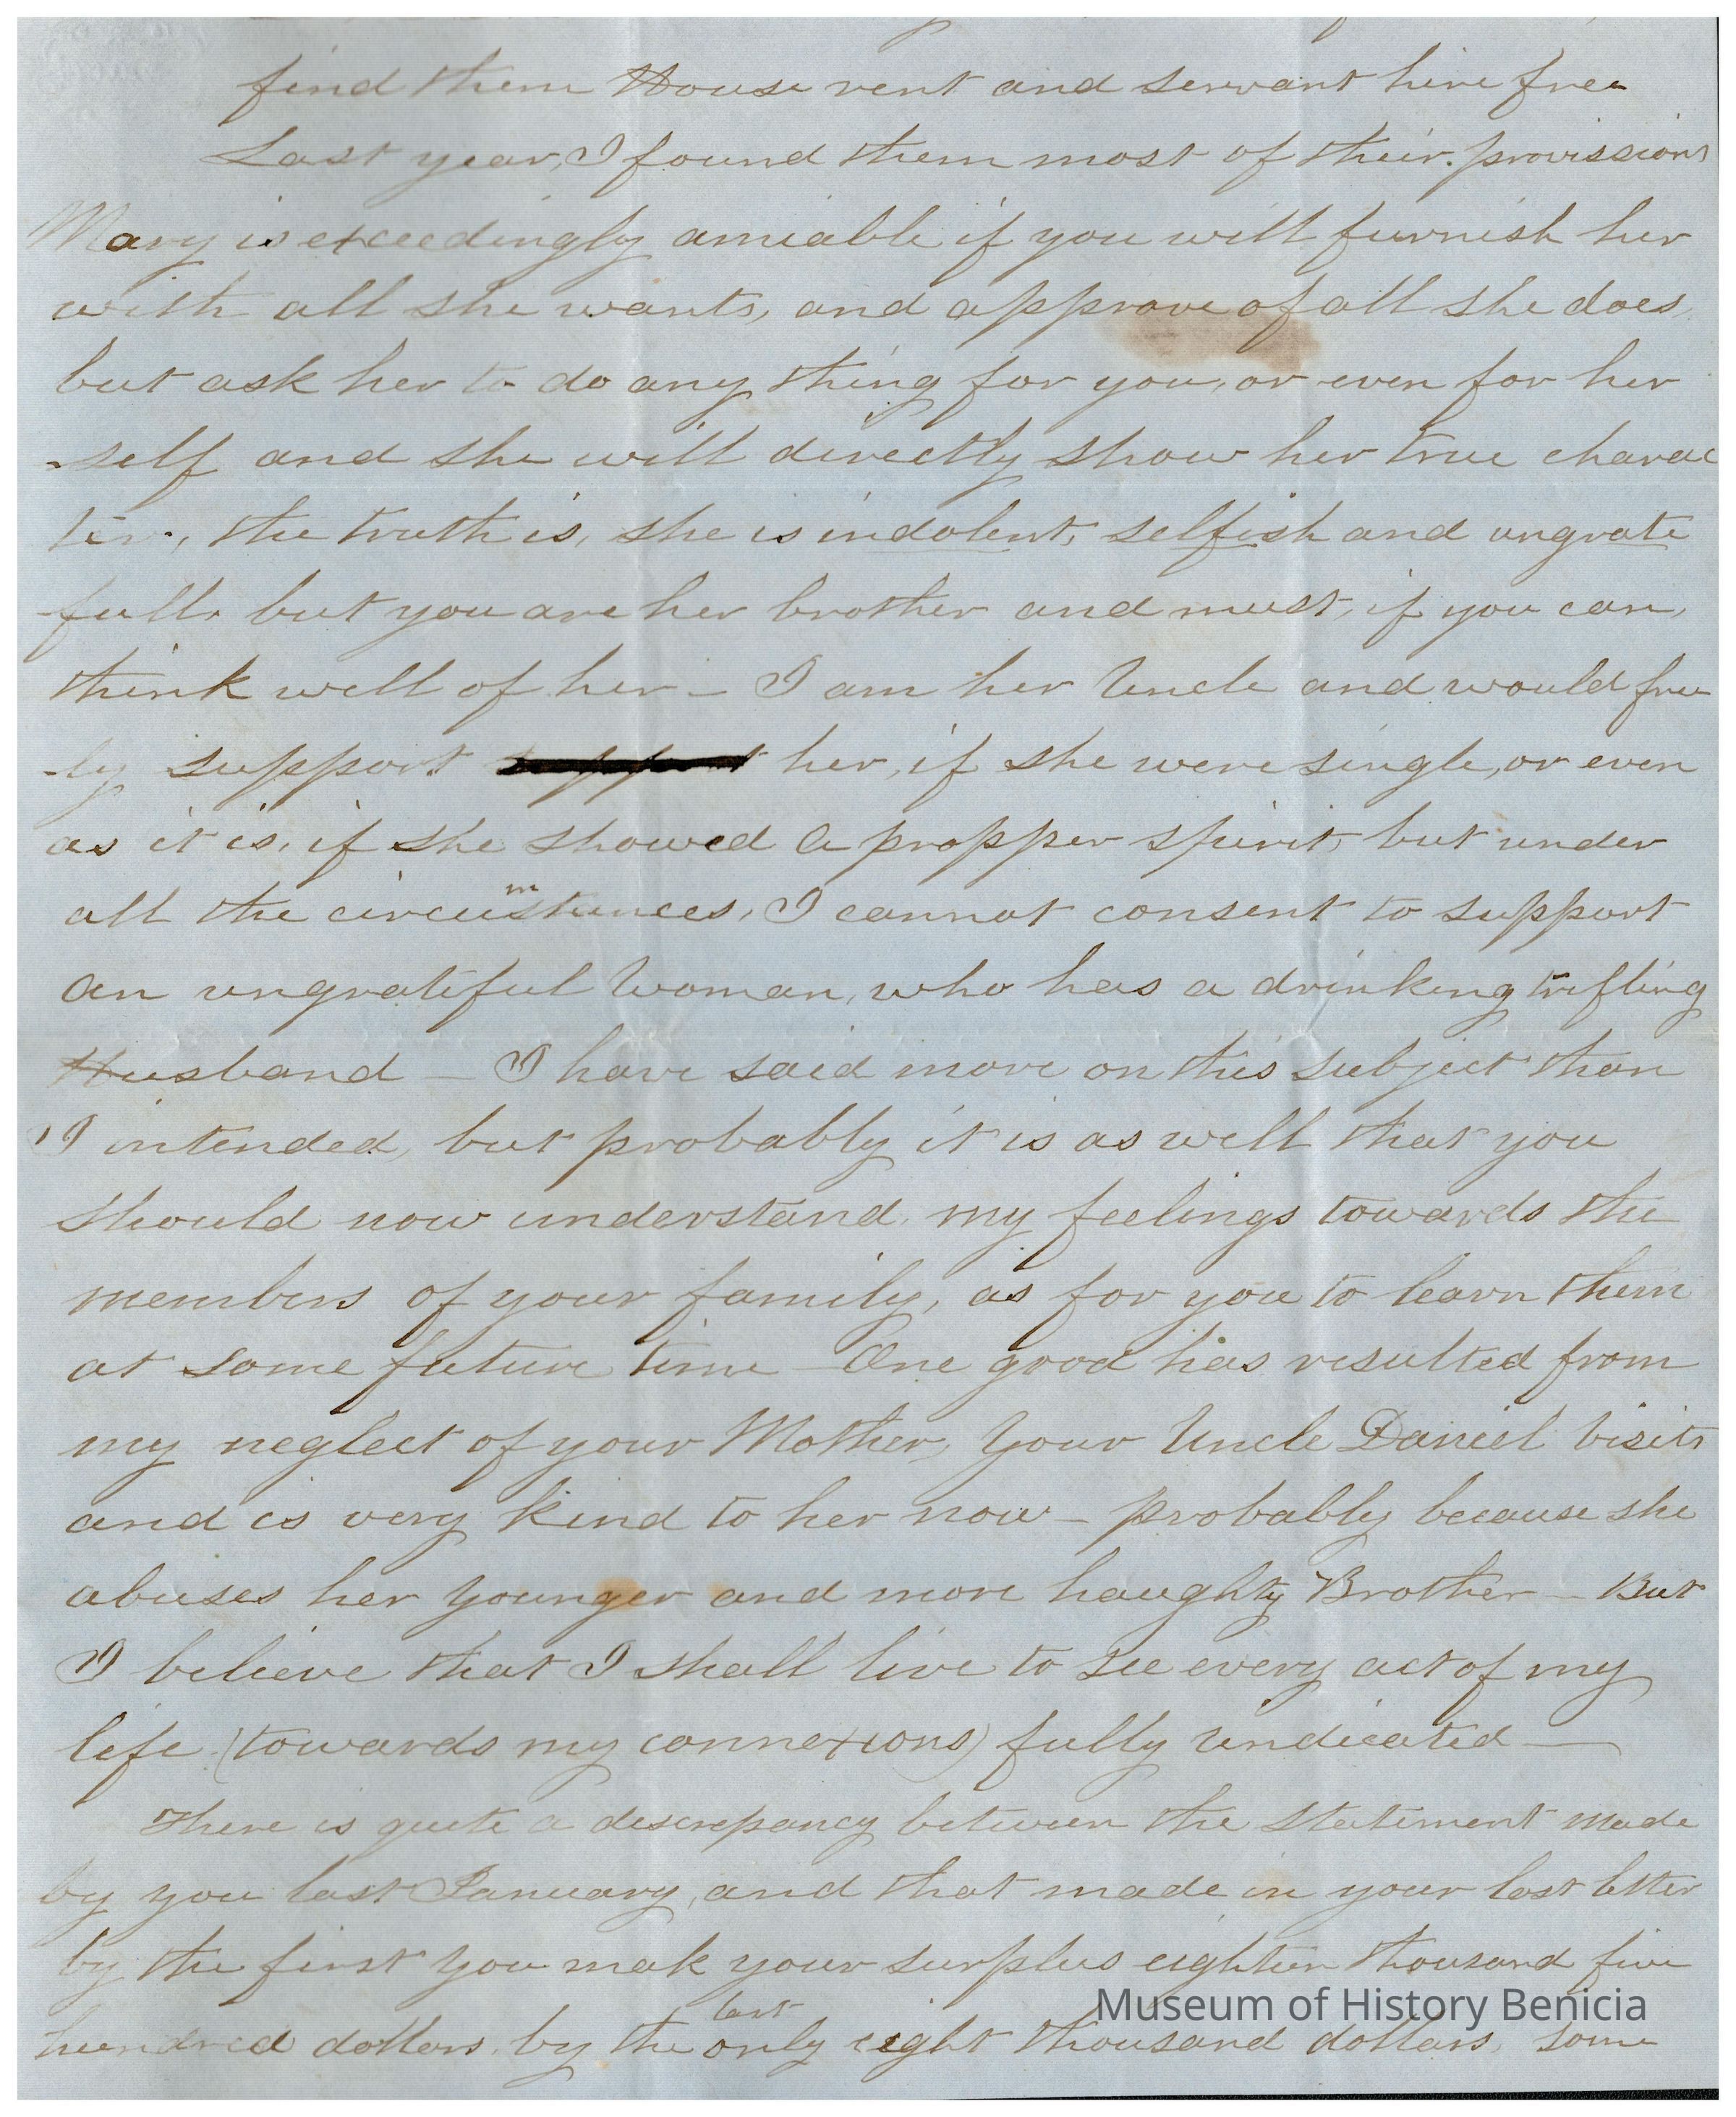 find them House rent and servant hire free
Last year, I found them most of their provissions
Mary is exceedingly amiable if you will furnish her
with all she wants, and approve of all she does,
but ask her to do any thing for you, or even for her
-self and she will directly show her true charac
ter, the truth is, she is indolent, selfish and ungrate
full, but you are her brother and must, if you can,
think well of her - I am her Uncle and would free
-ly support support her, if she were single, or even
as it is, if she showed a propper spirit, but under
all the circumstances, I cannot consent to support
an ungratiful woman, who has a drinking trifling
Husband - I have said more on this subject than
I intended, but probably it is as well that you
should now understand, my feelings towards the
members of your family, as for you to learn them
at some future time One good has resulted from
my neglect of your Mother, Your Uncle Daniel visits
and is very kind to her now - probably because she
abuses her younger and more haughty Brother - But
I believe that I shall live to see every act of my
life (towards my connexions) fully vindicated -
There is quite a descrepancy between the statement made
by you last January, and that made in your last letter
by the first you mak your surplus eighteen thousand five
hundred dollars, by the last only eight thousand dollars, some
Museum of History Benicia